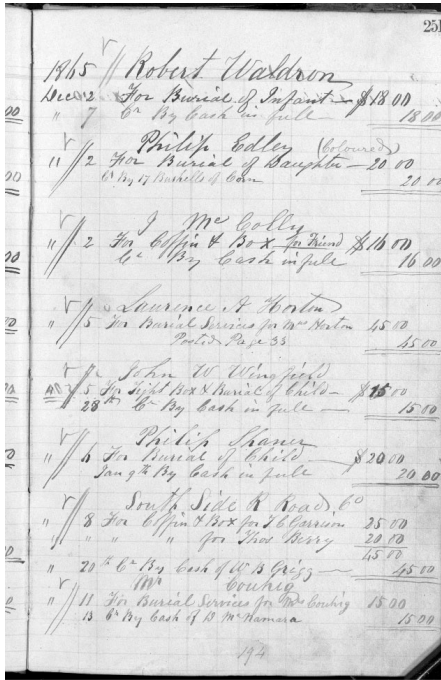 251
1865 Robert Waldron
Dec 2 For Burial of Infant — $18 00
" 7 Cr By Cash in full — 18 00
Philip Edley (Coloured)
" 2 For Burial of Daughter — 20 00
Cr By 17 Bushells of Corn 20 00
J Mc Colly
" 2 For Coffin & Box for Friend $16 00
Cr By Cash in full 16 00
Laurence A Horton
" 5 For Burial Services for Mrs Horton 45 00
Posted Page 33 45 00
John W Wingfield
5 For Tight Box & Burial of Child — $15 00
28th Cr By Cash in full — 15 00
Philip Shaner
" 6 For Burial of Child — $20 00
Jan 9th By Cash in full 20 00
South Side R Road Co
" 8 For Coffin & Box for J C Garrison 25 00
" " " for Thos Berry 20 00
45 00
" 20th Cr By Cash of W B Grigg — 45 00
Mr Couhig
" 11 For Burial Services for Mrs Couhig 15 00
13 Cr By Cash of B McNamara 15 00
194